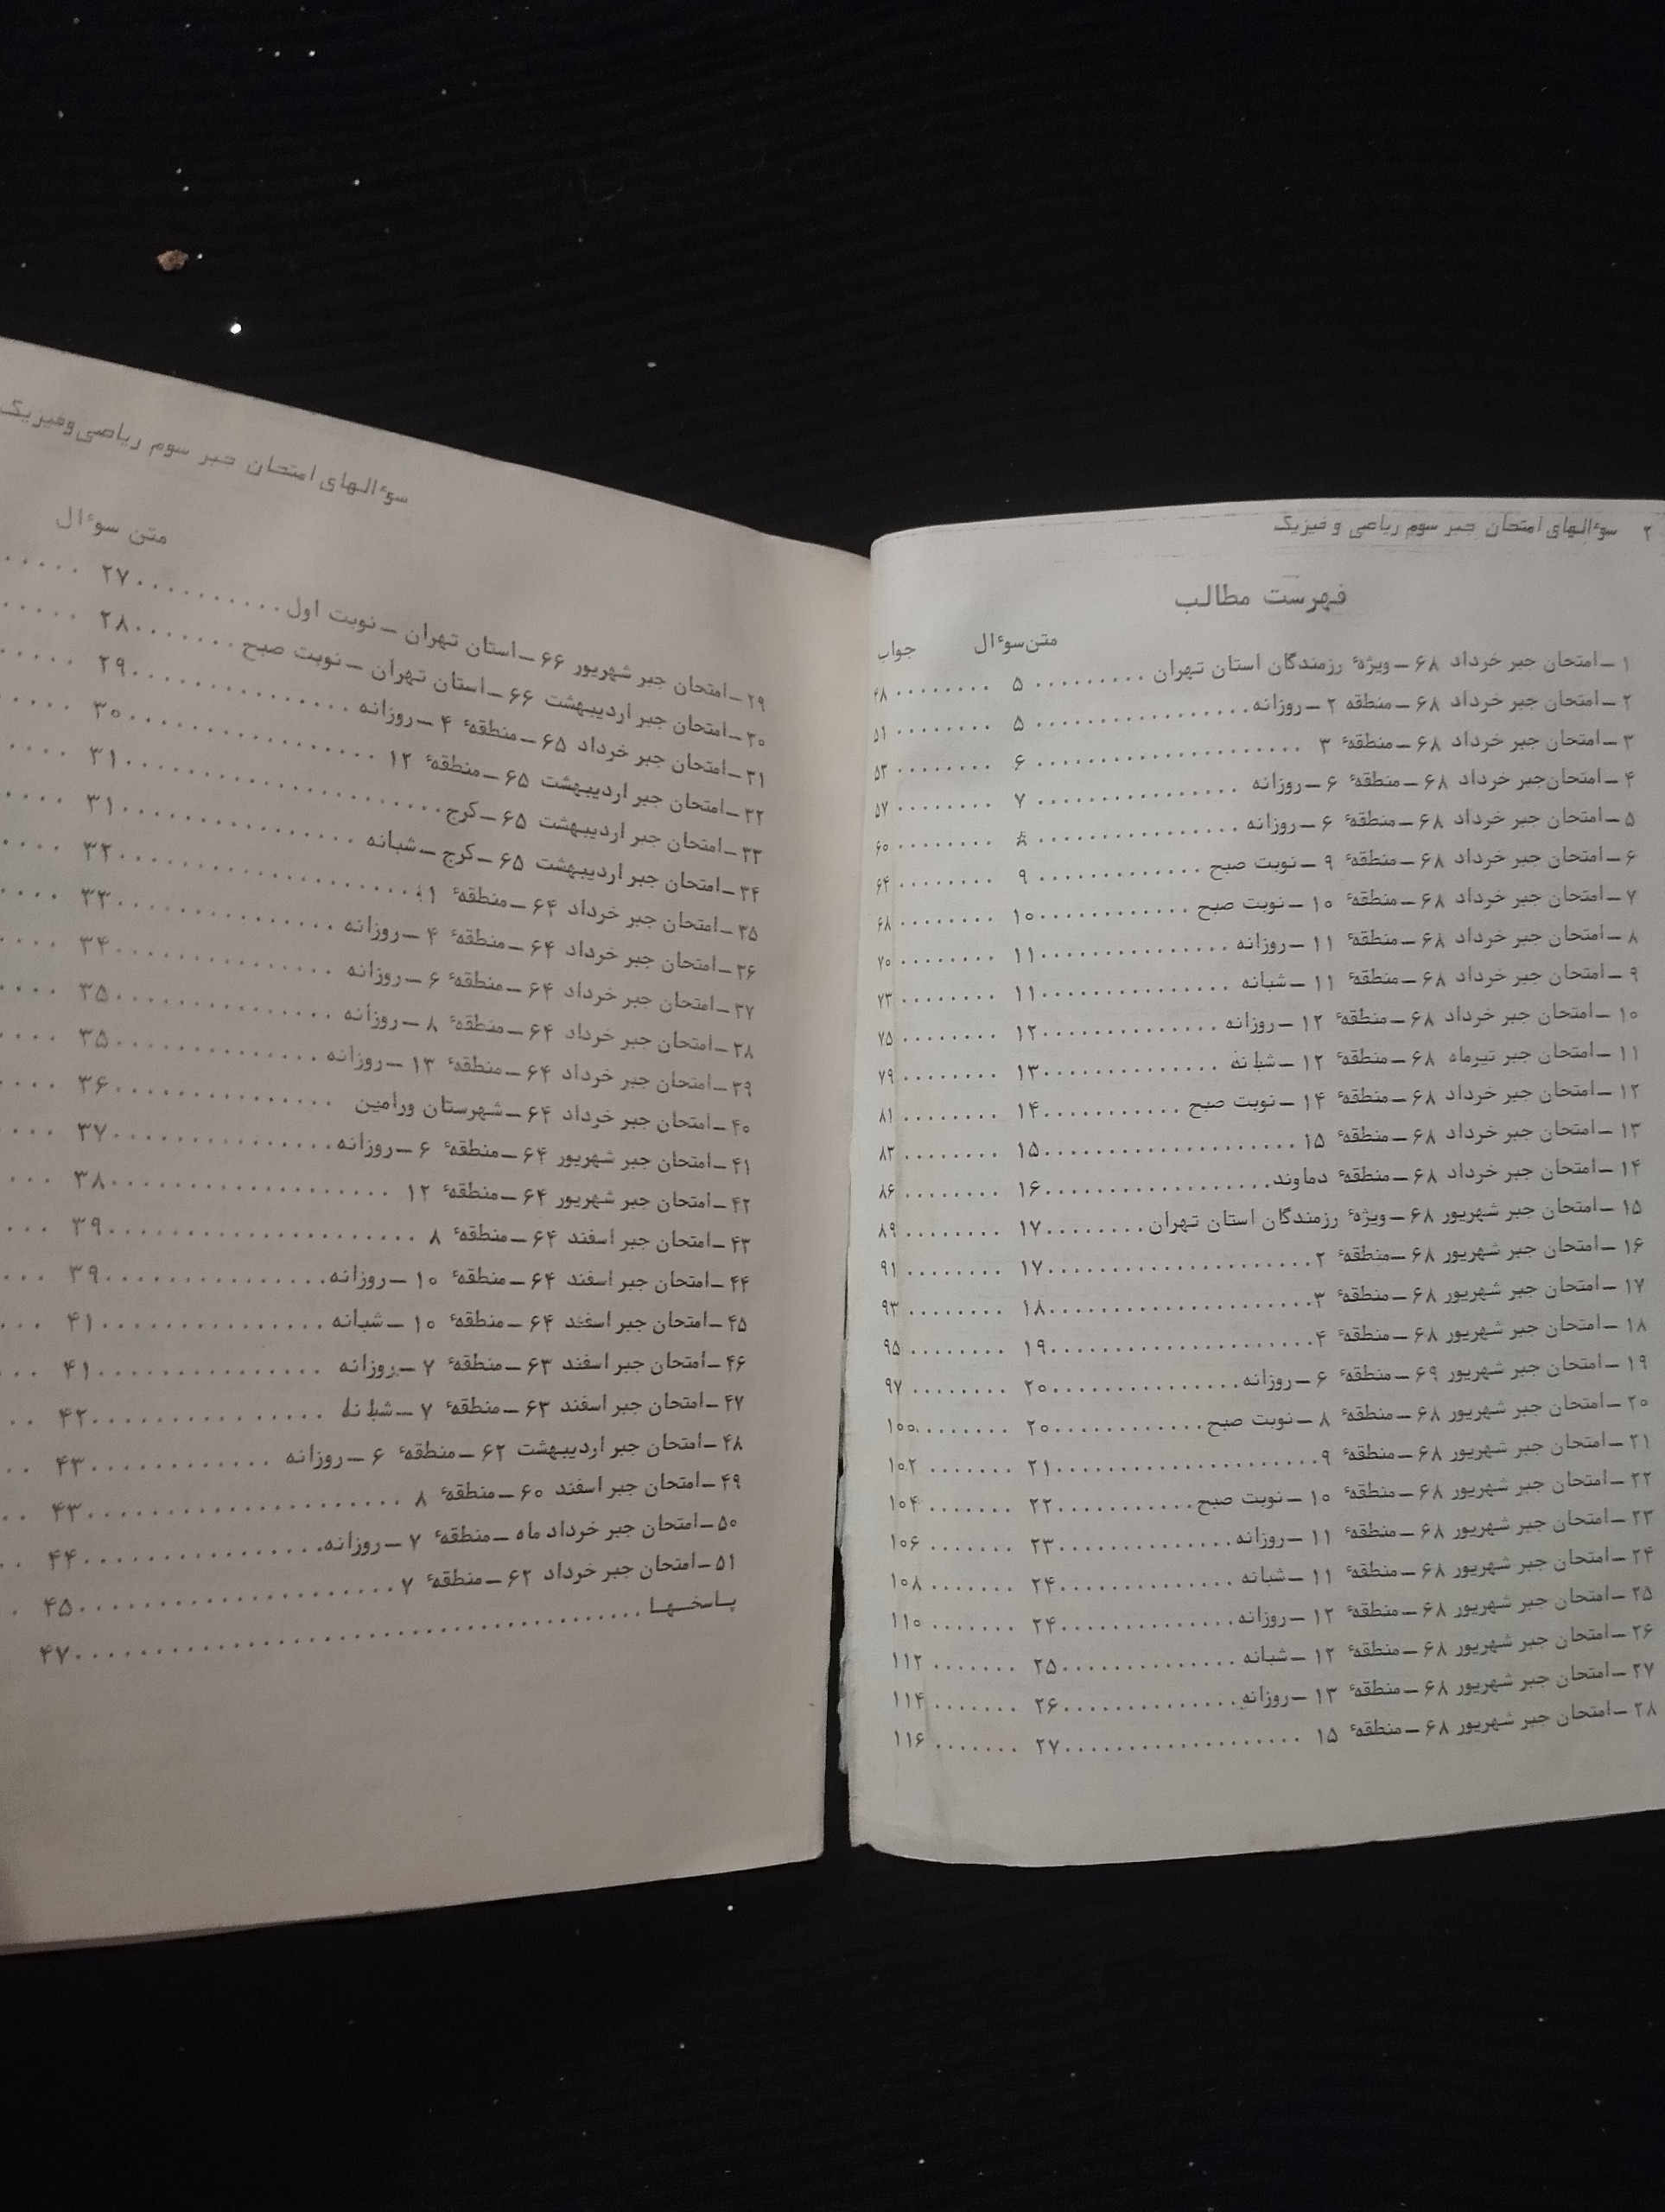 ۲ سوءالهای امتحان جبر سوم ریاضی و فیزیک
فهرست مطالب
متن‌سوءال جواب
۱ــ امتحان جبر خرداد ۶۸ــ ویژهٔ رزمندگان استان تهران ......... ۵ ........ ۴۸
۲ــ امتحان جبر خرداد ۶۸ــ منطقه ۲ــ روزانه................. ۵ ........ ۵۱
۳ــ امتحان جبر خرداد ۶۸ــ منطقهٔ ۳ ..................... ۶ ........ ۵۳
۴ــ امتحان‌جبر خرداد ۶۸ــ منطقهٔ ۶ــ روزانه ................ ۷ ........ ۵۷
۵ــ امتحان جبر خرداد ۶۸ــ منطقهٔ ۶ــ روزانه ................ ۸ ........ ۶۰
۶ــ امتحان جبر خرداد ۶۸ــ منطقهٔ ۹ ــ نوبت صبح ............. ۹ ........ ۶۴
۷ــ امتحان جبر خرداد ۶۸ــ منطقهٔ ۱۰ ــ نوبت صبح ............ ۱۰ ........ ۶۸
۸ــ امتحان جبر خرداد ۶۸ــ منطقهٔ ۱۱ ــ روزانه ...............۱۱ ........ ۷۰
۹ــ امتحان جبر خرداد ۶۸ــ منطقهٔ ۱۱ ــ شبانه ...............۱۱ ........ ۷۳
۱۰ــ امتحان جبر خرداد ۶۸ــ منطقهٔ ۱۲ ــ روزانه ..............۱۲ ........ ۷۵
۱۱ــ امتحان جبر تیرماه ۶۸ــ منطقهٔ ۱۲ ــ شبانه ..............۱۳ ........ ۷۹
۱۲ــ امتحان جبر خرداد ۶۸ــ منطقهٔ ۱۴ ــ نوبت صبح ...........۱۴ ........ ۸۱
۱۳ــ امتحان جبر خرداد ۶۸ــ منطقهٔ ۱۵ .....................۱۵ ........ ۸۳
۱۴ــ امتحان جبر خرداد ۶۸ــ منطقهٔ دماوند..................۱۶ ........ ۸۶
۱۵ــ امتحان جبر شهریور ۶۸ــ ویژهٔ رزمندگان استان تهران........۱۷ ........ ۸۹
۱۶ــ امتحان جبر شهریور ۶۸ــ منطقهٔ ۲.....................۱۷ ........ ۹۱
۱۷ــ امتحان جبر شهریور ۶۸ــ منطقهٔ ۳.....................۱۸ ........ ۹۳
۱۸ــ امتحان جبر شهریور ۶۸ــ منطقهٔ ۴.....................۱۹ ........ ۹۵
۱۹ــ امتحان جبر شهریور ۶۹ــ منطقهٔ ۶ــ روزانه...............۲۰ ........ ۹۷
۲۰ــ امتحان جبر شهریور ۶۸ــ منطقهٔ ۸ ــ نوبت صبح............۲۰ ........۱۰۰
۲۱ــ امتحان جبر شهریور ۶۸ــ منطقهٔ ۹.....................۲۱ ....... ۱۰۲
۲۲ــ امتحان جبر شهریور ۶۸ــ منطقهٔ ۱۰ ــ نوبت صبح...........۲۲ ....... ۱۰۴
۲۳ــ امتحان جبر شهریور ۶۸ــ منطقهٔ ۱۱ ــ روزانه..............۲۳ ....... ۱۰۶
۲۴ــ امتحان جبر شهریور ۶۸ــ منطقهٔ ۱۱ ــ شبانه ..............۲۴ ....... ۱۰۸
۲۵ــ امتحان جبر شهریور ۶۸ــ منطقهٔ ۱۲ ــ روزانه..............۲۴ ....... ۱۱۰
۲۶ــ امتحان جبر شهریور ۶۸ــ منطقهٔ ۱۲ ــ شبانه ..............۲۵ ....... ۱۱۲
۲۷ــ امتحان جبر شهریور ۶۸ــ منطقهٔ ۱۳ ــ روزانه..............۲۶ ....... ۱۱۴
۲۸ــ امتحان جبر شهریور ۶۸ــ منطقهٔ ۱۵ ....................۲۷ ....... ۱۱۶
سوءالهای امتحان جبر سوم ریاضی‌وفیزیک
متن سوءال
۲۹ــ امتحان جبر شهریور ۶۶ ــ استان تهران ــ نوبت اول...........۲۷ .....
۳۰ــ امتحان جبر اردیبهشت ۶۶ ــ استان تهران ــ نوبت صبح.......۲۸ .....
۳۱ــ امتحان جبر خرداد ۶۵ ــ منطقهٔ ۴ ــ روزانه ................۲۹ .....
۳۲ــ امتحان جبر اردیبهشت ۶۵ ــ منطقهٔ ۱۲ ..................۳۰ .....
۳۳ــ امتحان جبر اردیبهشت ۶۵ ــ کرج........................۳۱ ....
۳۴ــ امتحان جبر اردیبهشت ۶۵ ــ کرج ــ شبانه .................۳۱ ....
۳۵ــ امتحان جبر خرداد ۶۴ ــ منطقهٔ ۱......................۳۲ ....
۳۶ــ امتحان جبر خرداد ۶۴ ــ منطقهٔ ۴ ــ روزانه ...............۳۳ ....
۳۷ــ امتحان جبر خرداد ۶۴ ــ منطقهٔ ۶ ــ روزانه ...............۳۴ ....
۳۸ــ امتحان جبر خرداد ۶۴ ــ منطقهٔ ۸ ــ روزانه ...............۳۵ ....
۳۹ــ امتحان جبر خرداد ۶۴ ــ منطقهٔ ۱۳ ــ روزانه ..............۳۵ ....
۴۰ــ امتحان جبر خرداد ۶۴ ــ شهرستان ورامین ................۳۶ ....
۴۱ــ امتحان جبر شهریور ۶۴ ــ منطقهٔ ۶ ــ روزانه................۳۷ ....
۴۲ــ امتحان جبر شهریور ۶۴ ــ منطقهٔ ۱۲ ....................۳۸ ...
۴۳ــ امتحان جبر اسفند ۶۴ ــ منطقهٔ ۸ ......................۳۹ ...
۴۴ــ امتحان جبر اسفند ۶۴ ــ منطقهٔ ۱۰ ــ روزانه................۳۹ ...
۴۵ــ امتحان جبر اسفند ۶۴ ــ منطقهٔ ۱۰ ــ شبانه ................۴۱ ...
۴۶ــ امتحان جبر اسفند ۶۳ ــ منطقهٔ ۷ ــ روزانه ................۴۱ ...
۴۷ــ امتحان جبر اسفند ۶۳ ــ منطقهٔ ۷ ــ شبانه ................۴۲ ..
۴۸ــ امتحان جبر اردیبهشت ۶۲ ــ منطقهٔ ۶ ــ روزانه ............۴۳ ..
۴۹ــ امتحان جبر اسفند ۶۰ ــ منطقهٔ ۸ ......................۴۳ ..
۵۰ــ امتحان جبر خرداد ماه ــ منطقهٔ ۷ ــ روزانه.................۴۴ ..
۵۱ــ امتحان جبر خرداد ۶۲ ــ منطقهٔ ۷ ......................۴۵ .
پاسخها ........................................۴۷